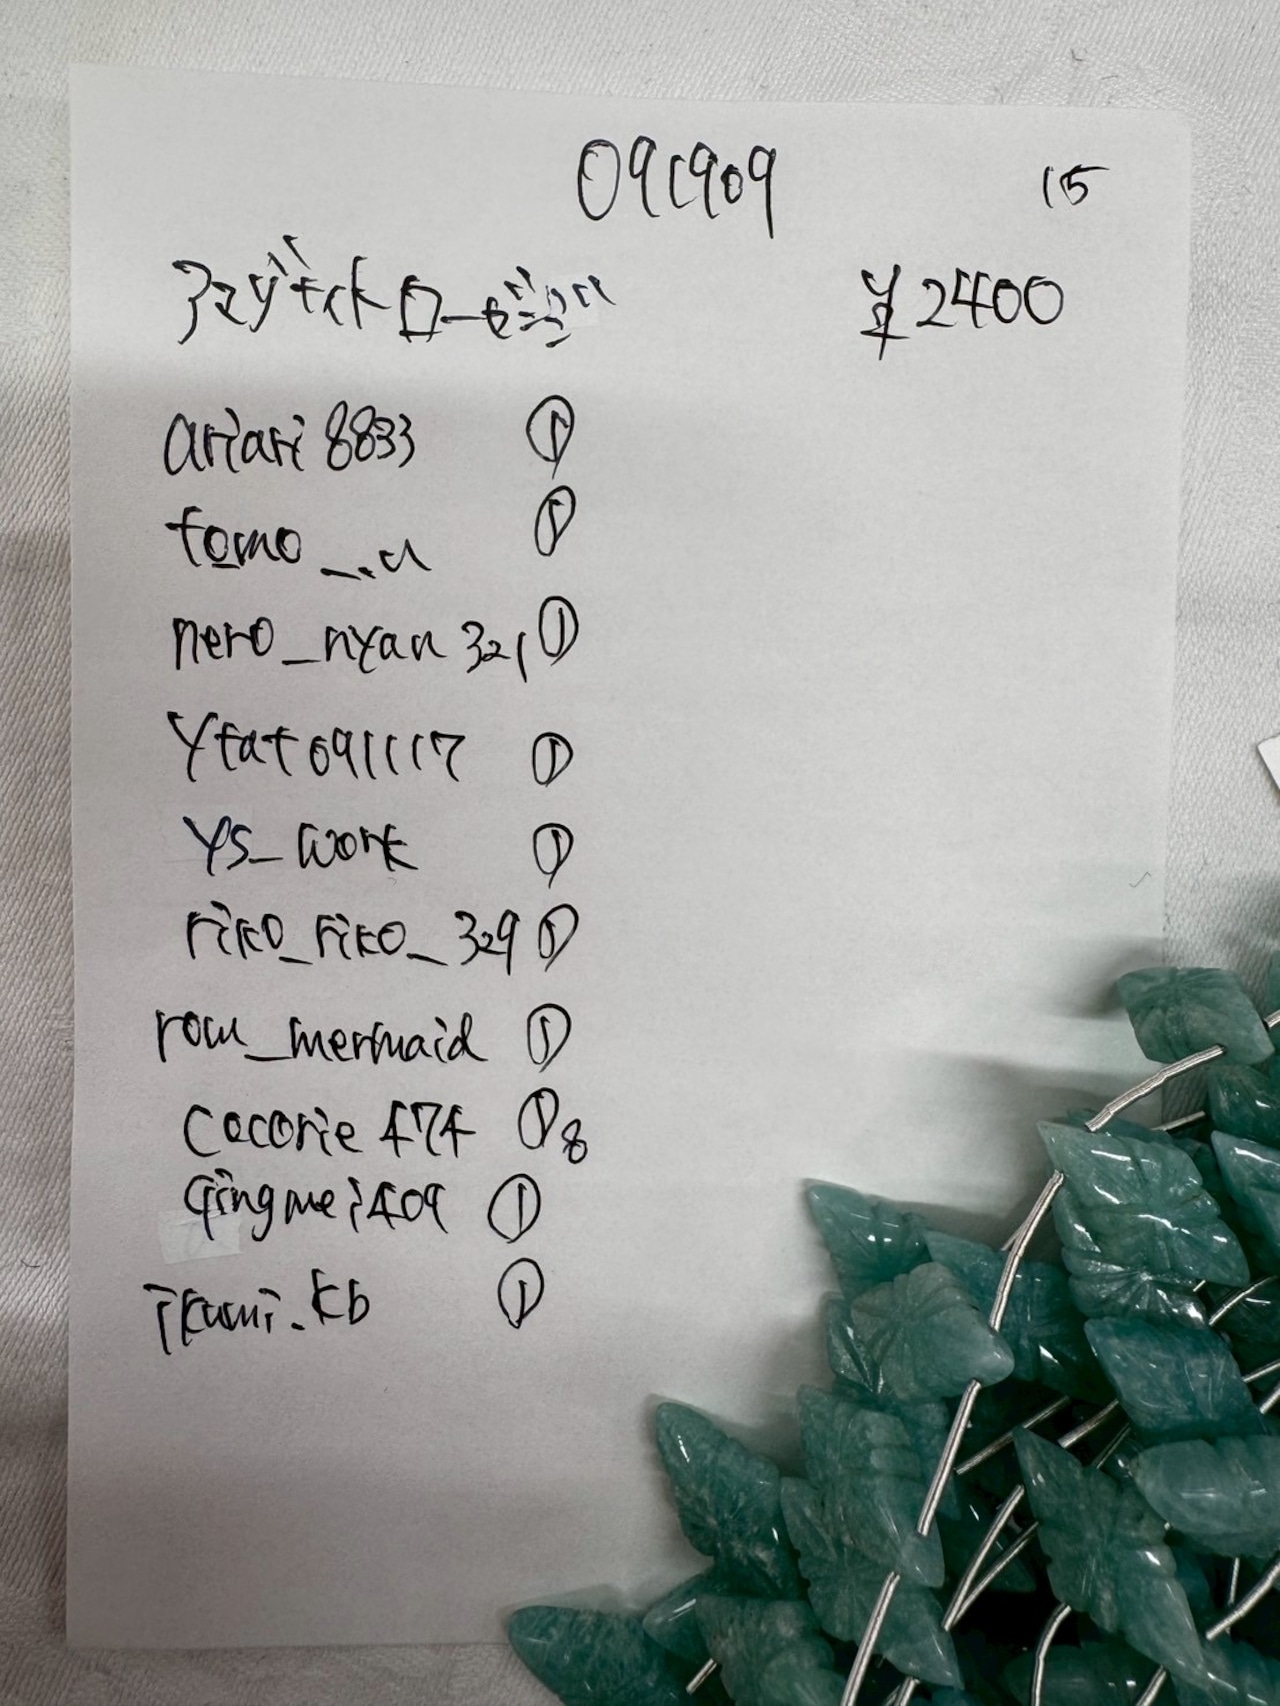 091909 15
¥2400
ariari8833 ①
tomo__.u ①
nero_nyan321 ①
Ytat091117 ①
YS_work ①
riko_riko_329 ①
rou_mermaid ①
cocorie474 ① 8
qingmei409 ①
ikumi.kb ①